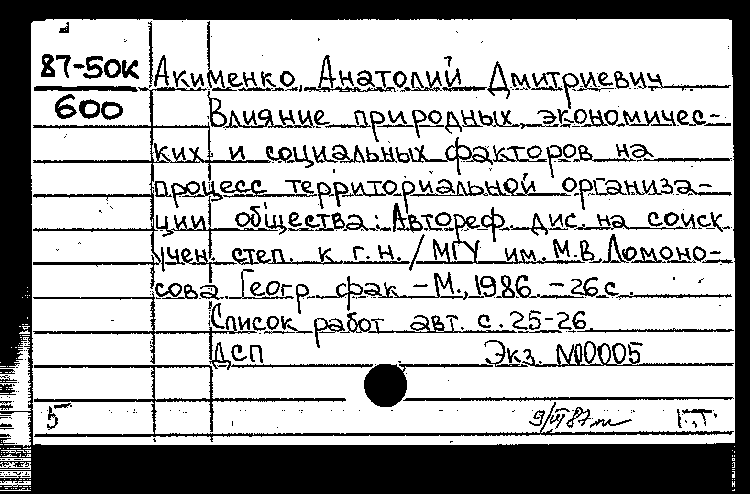 87-50К Акименко, Анатолий Дмитриевич
600 Влияние природных, экономичес-
ких и социальных факторов на
процесс территориальной организа-
ции общества: Автореф. дис. на соиск
учен. степ. к г.н. / МГУ им. М.В. Ломоно-
сова Геогр фак - М., 1986. - 26 с.
Список работ авт. с. 25-26.
ДСП Экз. №00005
5 9/VI 87 Г.Т.